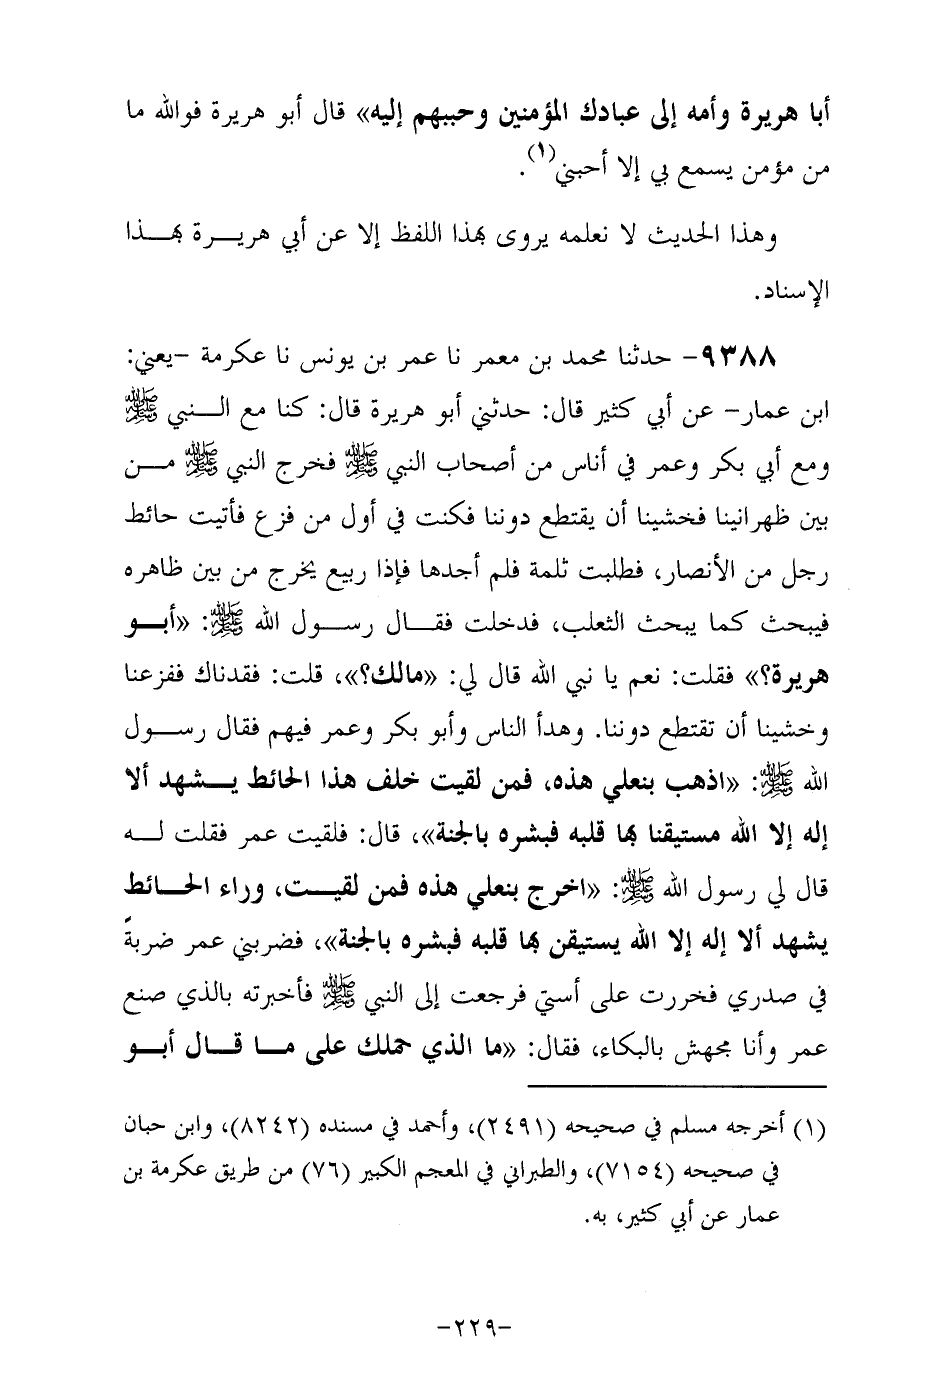 أبا هريرة وأمه إلى عبادك المؤمنين وحببهم إليه» قال أبو هريرة فوالله ما
من مؤمن يسمع بي إلا أحبني(١).
وهذا الحديث لا نعلمه يروى بهذا اللفظ إلا عن أبي هريرة بهذا
الإسناد.
٩٣٨٨- حدثنا محمد بن معمر نا عمر بن يونس نا عكرمة -يعني:
ابن عمار- عن أبي كثير قال: حدثني أبو هريرة قال: كنا مع النبي ﷺ
ومع أبي بكر وعمر في أناس من أصحاب النبي ﷺ فخرج النبي ﷺ من
بين ظهرانينا فخشينا أن يقتطع دوننا فكنت في أول من فزع فأتيت حائط
رجل من الأنصار، فطلبت ثلمة فلم أجدها فإذا ربيع يخرج من بين ظاهره
فيبحث كما يبحث الثعلب، فدخلت فقال رسول الله ﷺ: «أبو
هريرة؟» فقلت: نعم يا نبي الله قال لي: «مالك؟»، قلت: فقدناك ففزعنا
وخشينا أن تقتطع دوننا. وهدأ الناس وأبو بكر وعمر فيهم فقال رسول
الله ﷺ: «اذهب بنعلي هذه، فمن لقيت خلف هذا الحائط يشهد ألا
إله إلا الله مستيقنا بها قلبه فبشره بالجنة»، قال: فلقيت عمر فقلت له
قال لي رسول الله ﷺ: «اخرج بنعلي هذه فمن لقيت، وراء الحائط
يشهد ألا إله إلا الله يستيقن بها قلبه فبشره بالجنة»، فضربني عمر ضربةً
في صدري فخررت على أستي فرجعت إلى النبي ﷺ فأخبرته بالذي صنع
عمر وأنا مجهش بالبكاء، فقال: «ما الذي حملك على ما قال أبو
(١) أخرجه مسلم في صحيحه (٢٤٩١)، وأحمد في مسنده (٨٢٤٢)، وابن حبان
في صحيحه (٧١٥٤)، والطبراني في المعجم الكبير (٧٦) من طريق عكرمة بن
عمار عن أبي كثير، به.
-٢٢٩-